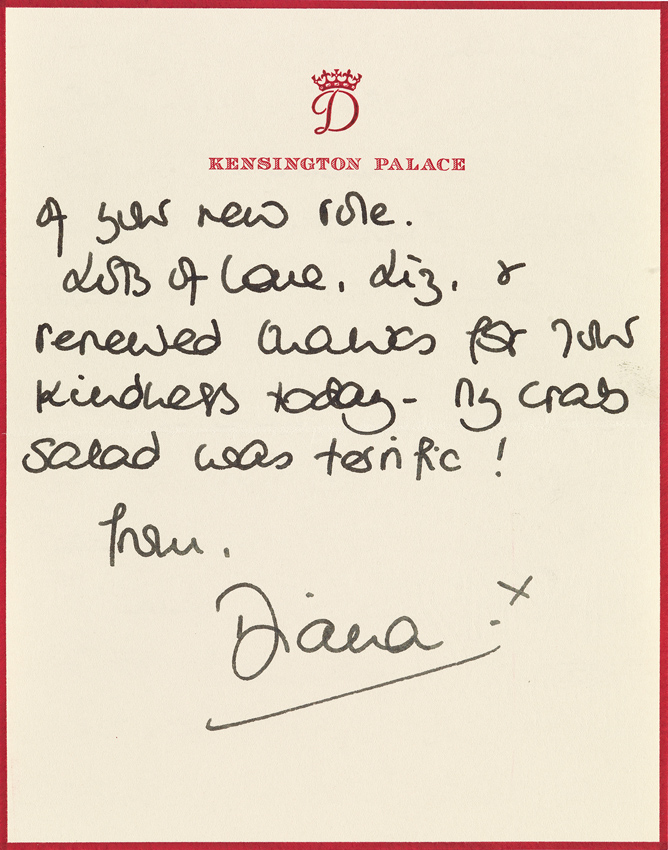 D
KENSINGTON PALACE
of your new role.
Lots of love, Liz, &
renewed thanks for your
kindness today - My crab
salad was terrific !
from,
Diana . x